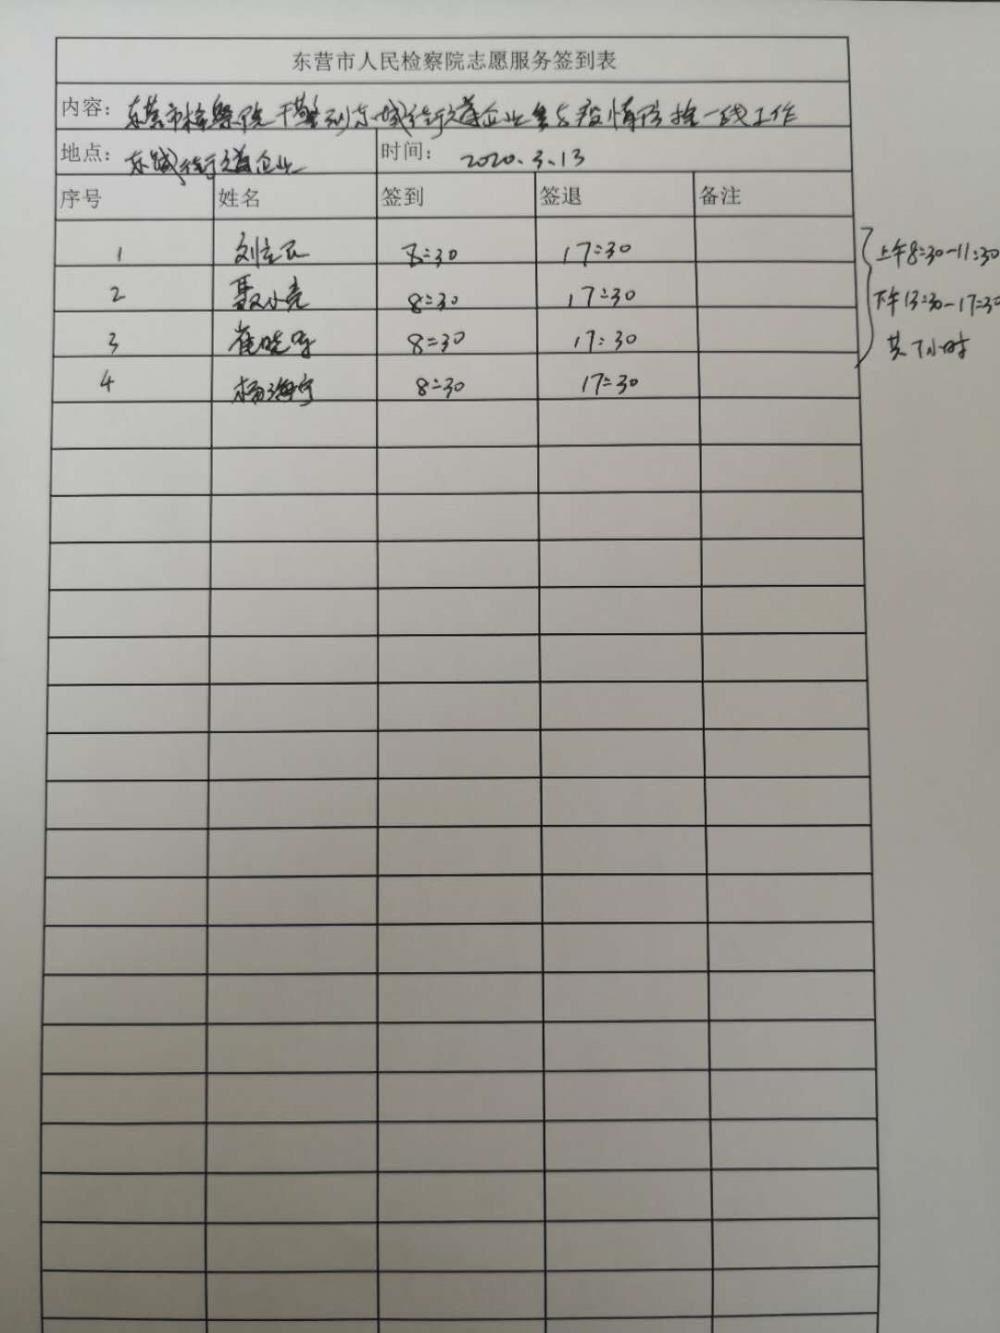 东营市人民检察院志愿服务签到表
内容：东营市检察院干警到东城街道企业参与疫情防控一线工作
地点：东城街道企业 时间：2020.3.13
序号 姓名 签到 签退 备注
1 刘立民 8:30 17:30
2 聂小亮 8:30 17:30
3 崔晓 8:30 17:30
4 杨海宁 8:30 17:30
上午8:30-11:30
下午13:30-17:30
共7小时